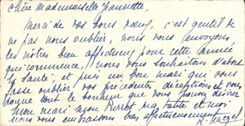 Chère Mademoiselle Jeannette
Merci de vos bons vœux, c'est gentil de
ne pas nous oublier, nous vous envoyons
les nôtres bien affectueux pour cette année
qui commence, nous vous souhaitons d'abord
la santé, et puis un bon mari que vous
fasse oublier vos précédentes déceptions et vous
donne tout le bonheur que vous
mon mari mon Pierrot ma petite et moi
nous vous embrassons très affectueusement